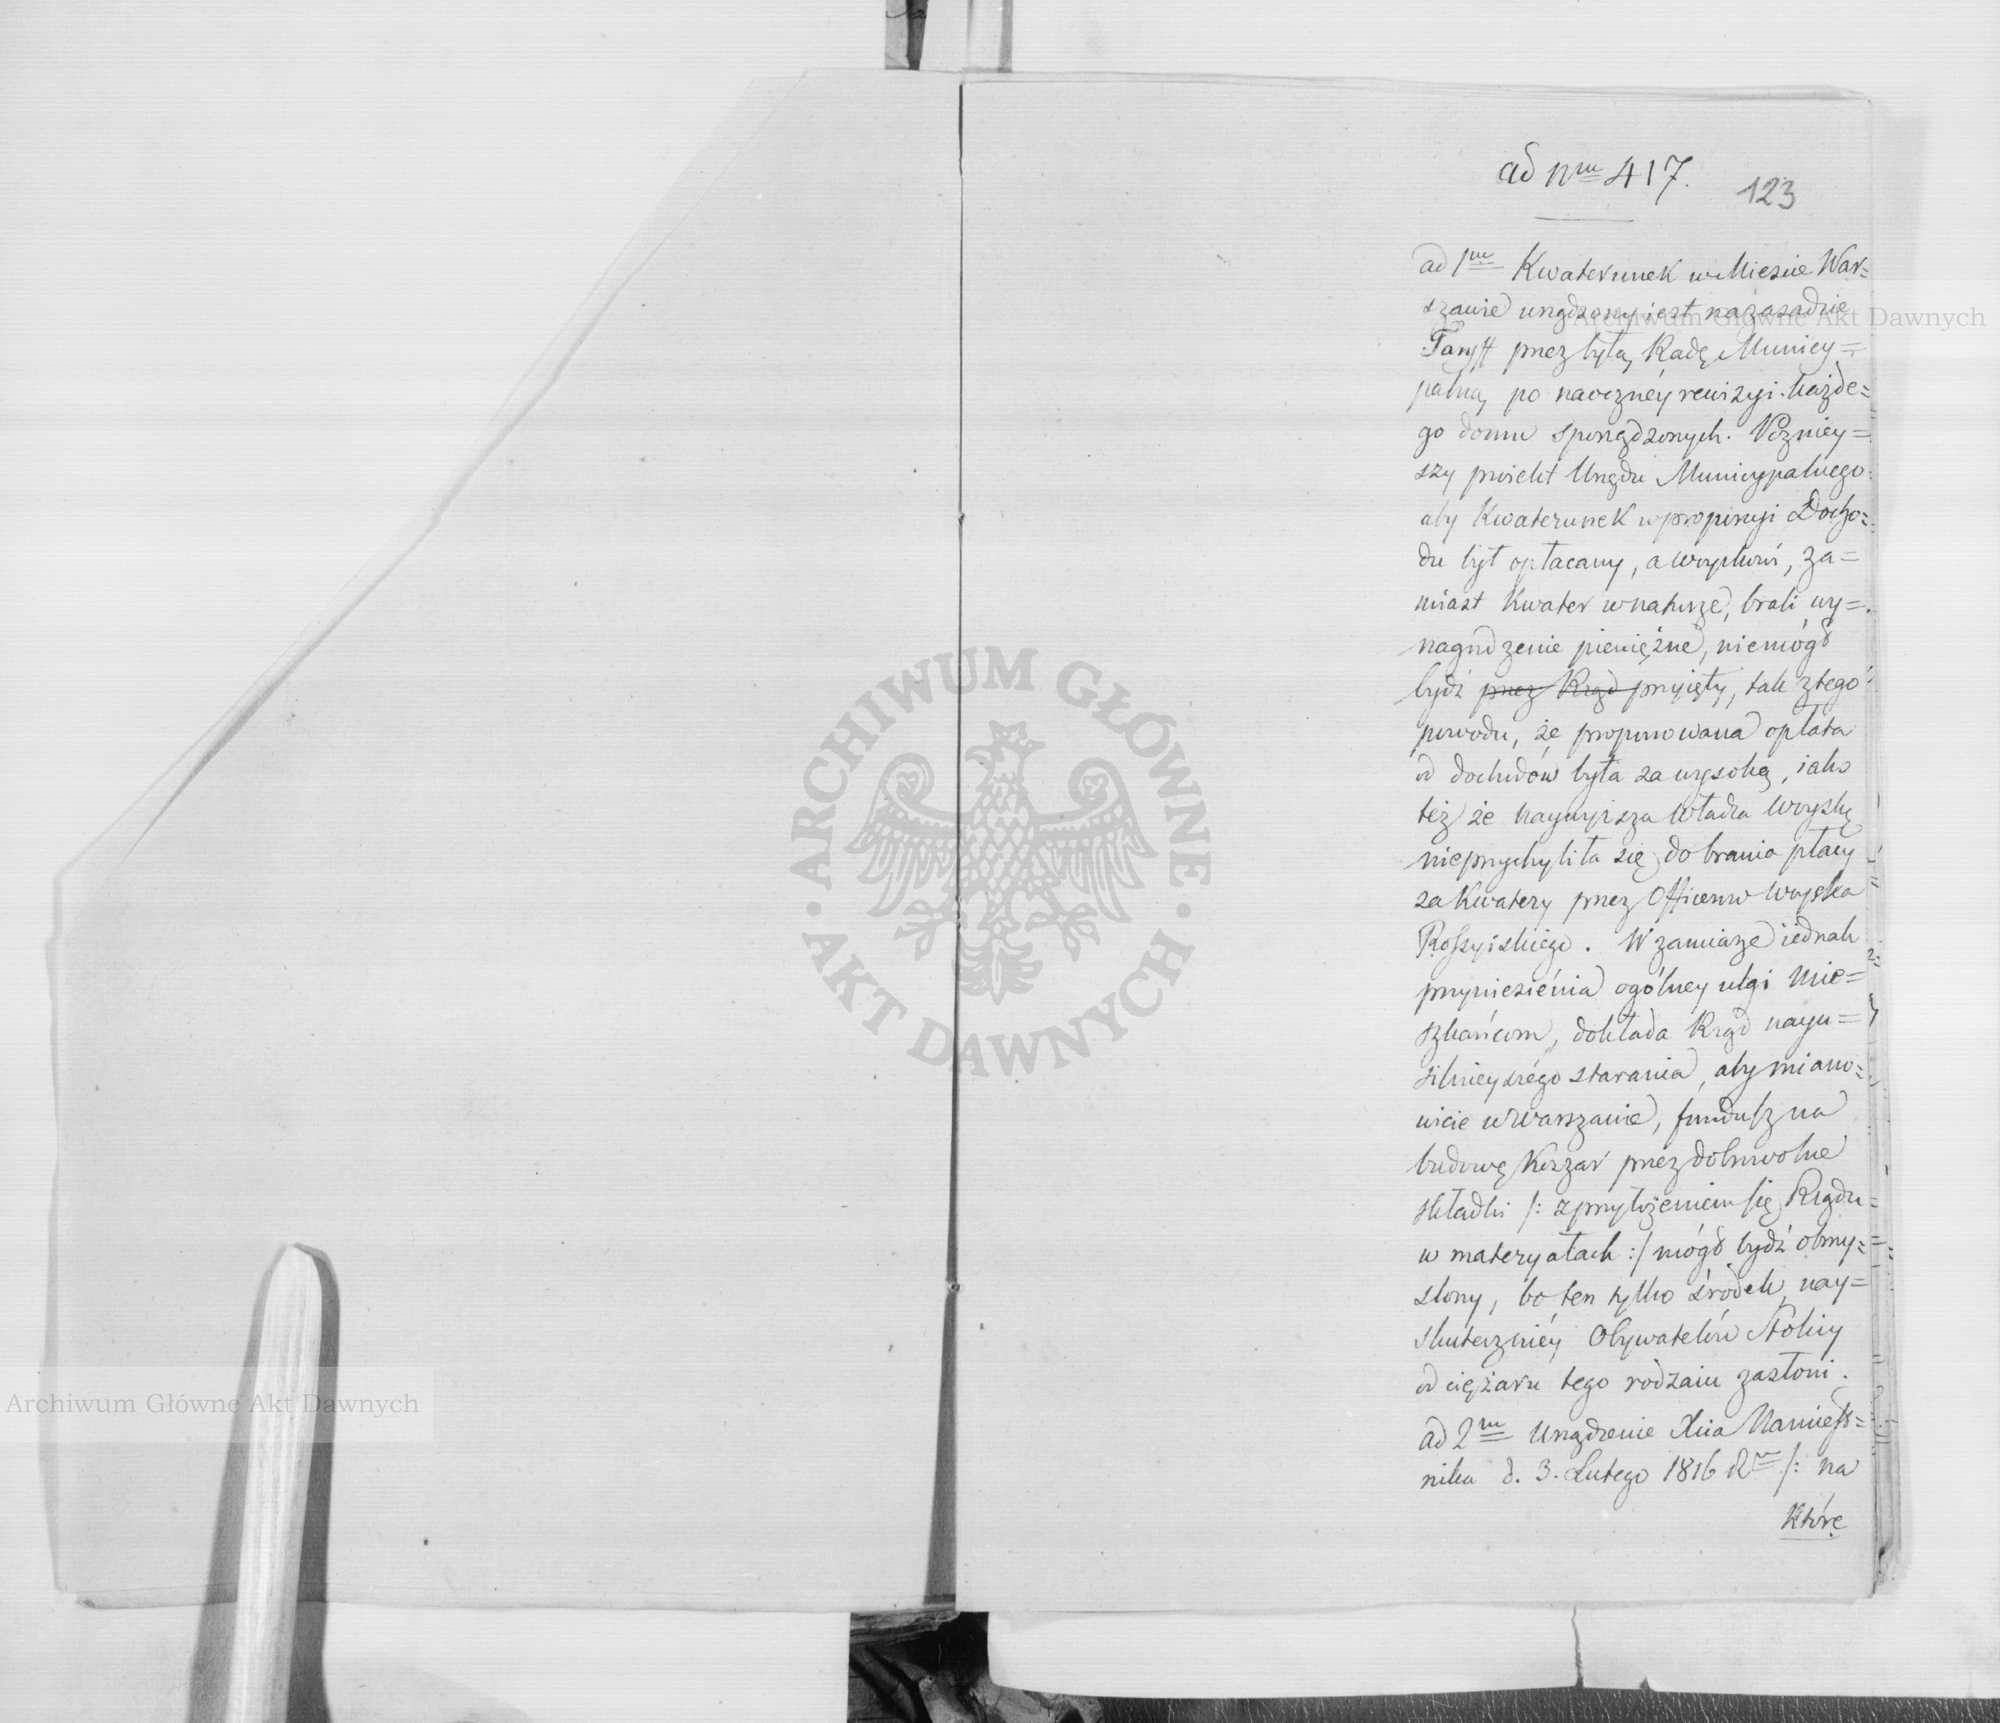 ad Nrm 417.
123
ad 1me Kwaterunek w Mieście War=
szawie urządzony iest na zasadzie
Taryff przez byłą Radę Municy=
palną po naoczney rewizyi każde=
go domu sporządzonych. Pożniey=
szy proiekt Urzędu Municypalnego
aby Kwaterunek w proporcyi Docho=
du był opłacany, a woyskowi, za=
miast Kwater w naturze, brali wy=
nagrodzenie pieniężne, niemógł
bydź przez Rząd przyięty, tak z tego
powodu, że proponowana opłata
od dochodów była za wysoką, iako
też że naywyższa władza woyską
nieprzychyliła się do brania płacy
za Kwatery przez Officerow woyska
Rossyiskiego. W zamiarze iednak
przyniesienia ogólney ulgi Mie=
szkańcom, dokłada Rząd nayu=
silnieyszégo starania, aby miano=
wicie w Warszawie, fundusz na
budowę Koszar przez dobrowolne
składki /: z przyłożeniem się Rządu
w materyałach :/ mógł bydź obmy=
slony, bo ten tylko środek nay=
skuteczniéy Obywatelów Stolicy
od ciężaru tego rodzaiu zasłoni.
ad 2m Urządzenie Xcia Namiest=
nika d. 3. Lutego 1816 R. /: na
Które
Archiwum Główne Akt Dawnych
Archiwum Główne Akt Dawnych
ARCHIWUM GŁÓWNE · AKT DAWNYCH ·